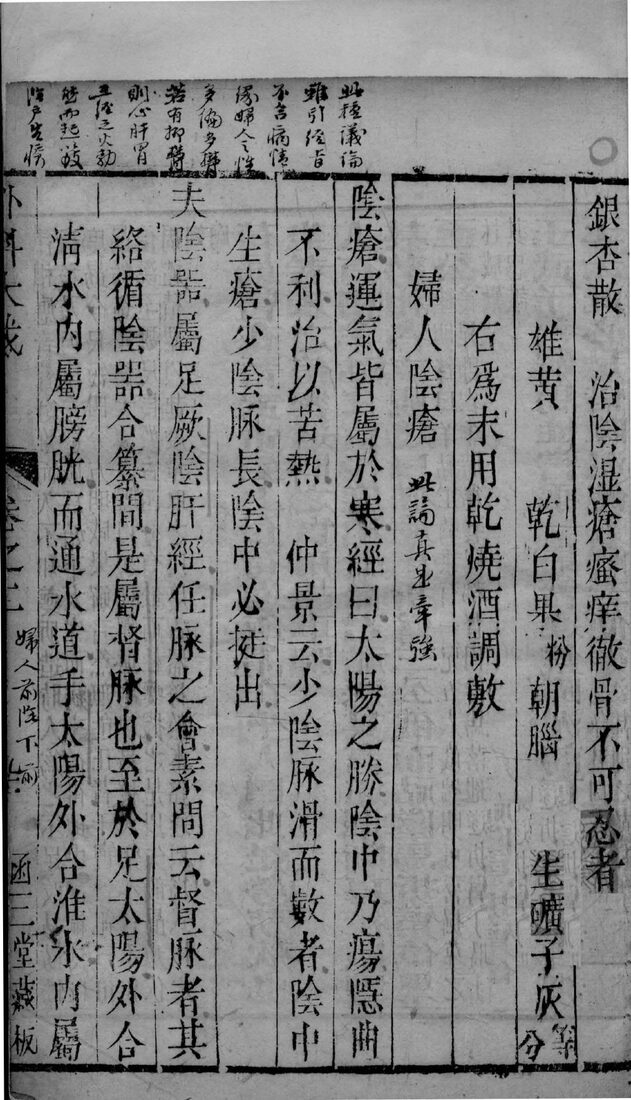 銀杏散　治陰湿瘡瘙痒徹骨不可忍者
雄黃　乾白果粉　朝腦　生礦子灰等分
右為末用乾燒酒調敷
婦人陰瘡　此論真是牽強
陰瘡運氣皆屬於寒經曰太陽之勝陰中乃瘍隱曲
不利治以苦熱　仲景云少陰脉滑而數者陰中
生瘡少陰脉長陰中必挺出
夫陰器屬足厥陰肝經任脉之會素問云督脉者其
絡循陰器合纂間是屬督脉也至於足太陽外合
清水内屬膀胱而通水道手太陽外合淮水内屬
外科大成　卷之二　婦人前陰下前　函三堂藏板
此種議論
雖引經旨
不合病情
緣婦人之性
多偏多欝
若有抑欝
則心肝胃
五陰之火勃
然而起故